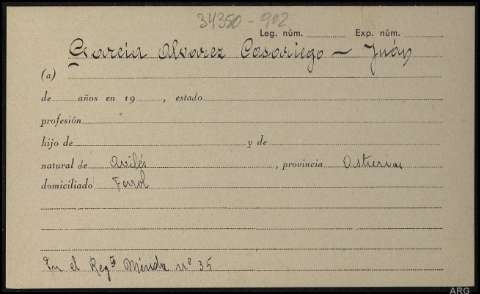 34350-902
Leg. núm. Exp. núm.
Garcia Alvarez Casariego — Juán
(a)
de años en 19 , estado
profesión
hijo de y de
natural de Avilés , provincia Asturias
domiciliado Ferrol
En el Regtº Mérida nº 35
ARG